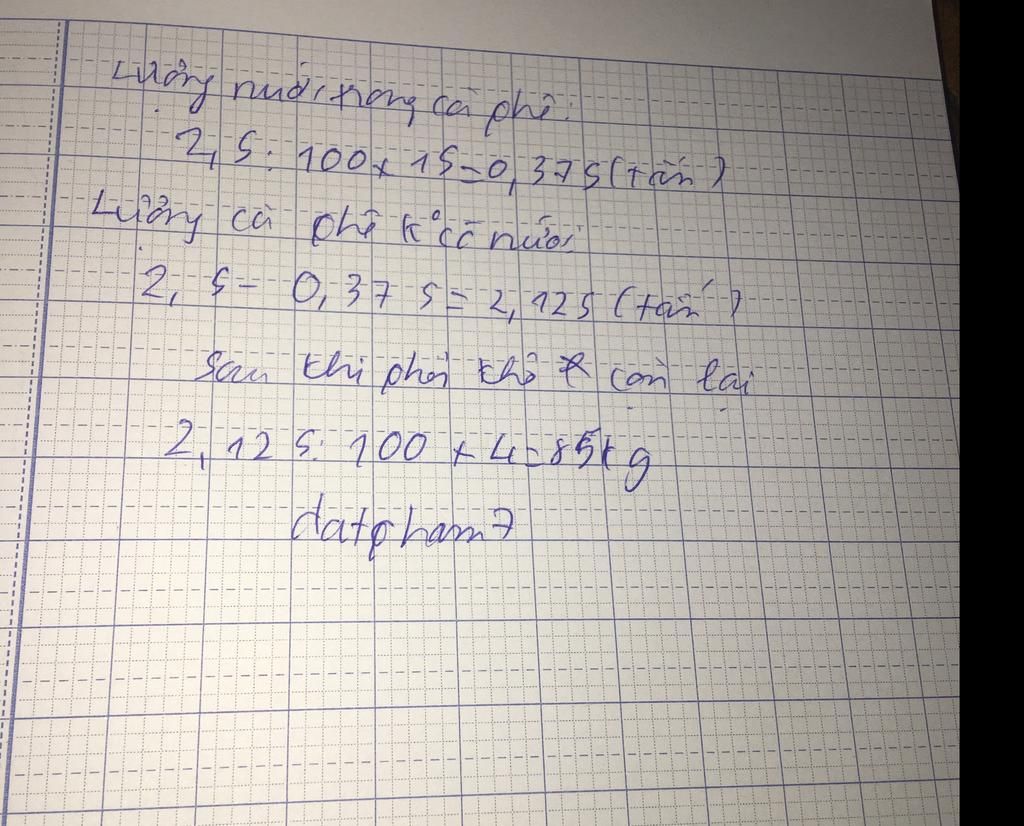 Lượng nước trong cà phê:
2,5 : 100 x 15 = 0,375 (tấn)
Lượng cà phê k° có nước
2,5 - 0,375 = 2,125 (tấn)
Sau khi phơi khô còn lại
2,125 : 100 x 4 = 85kg
datpham7